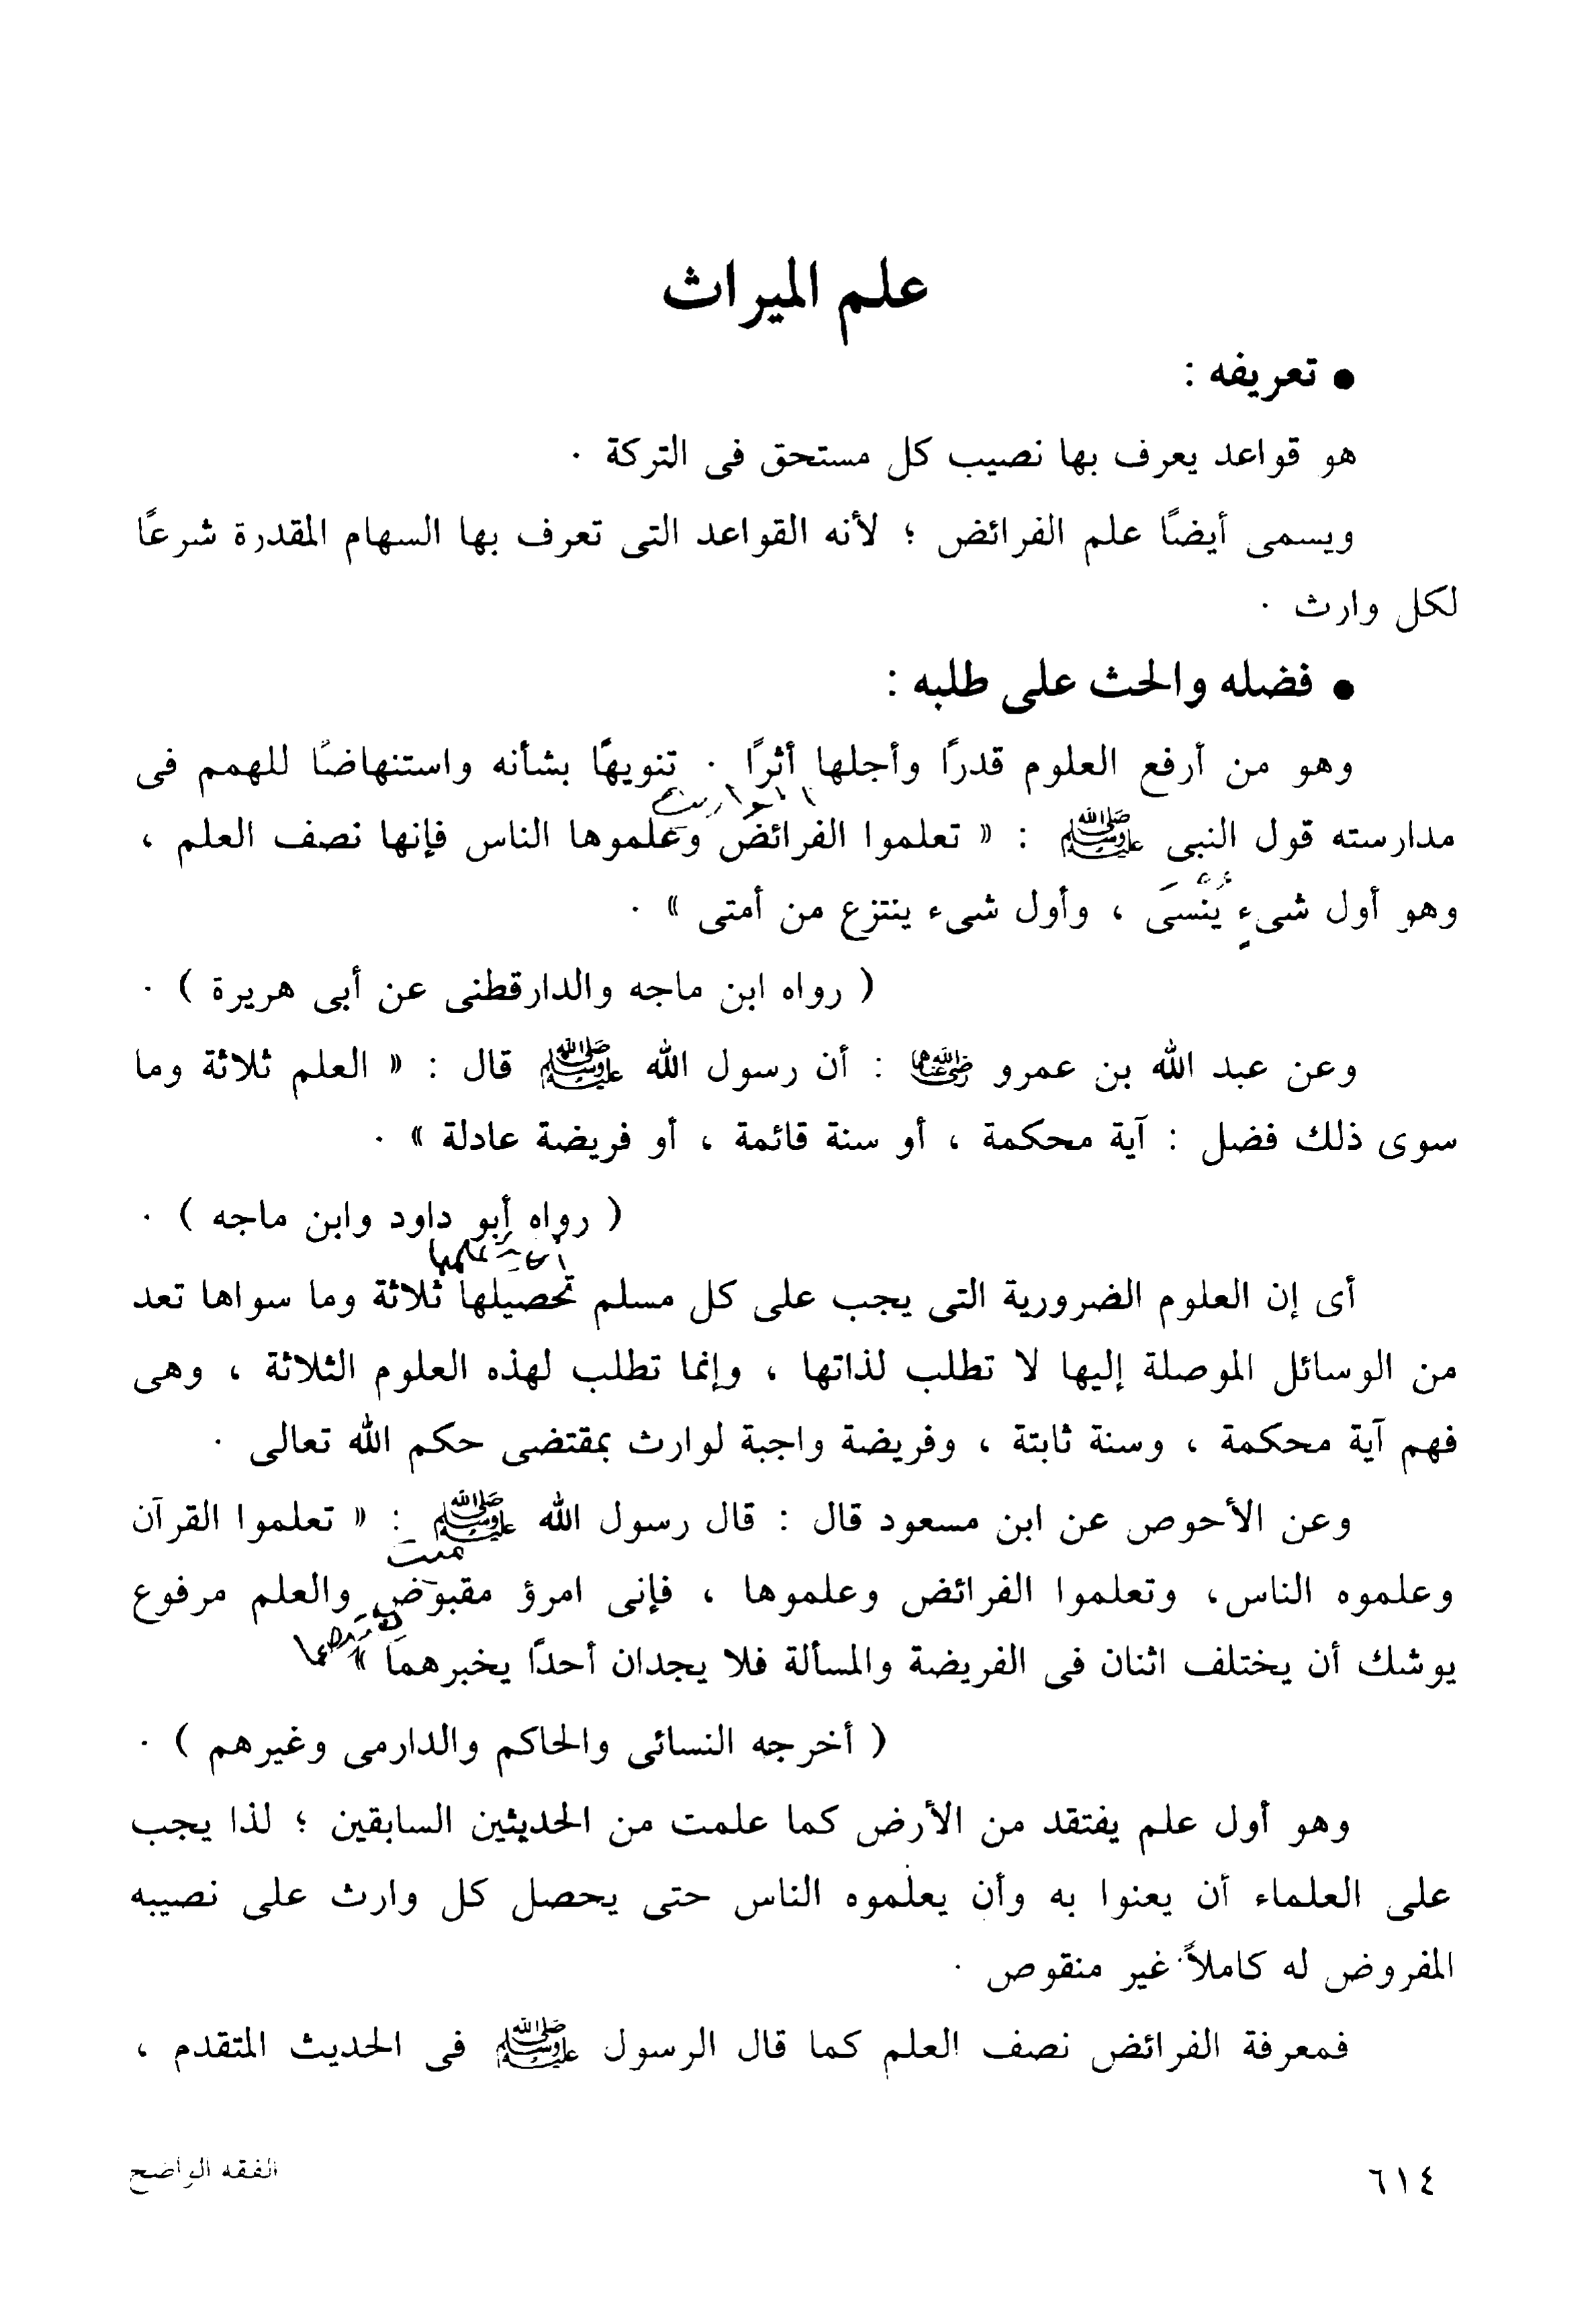 علم الميراث
● تعريفه :
هو قواعد يعرف بها نصيب كل مستحق فى التركة .
ويسمى أيضًا علم الفرائض ؛ لأنه القواعد التى تعرف بها السهام المقدرة شرعًا
لكل وارث .
● فضله والحث على طلبه :
وهو من أرفع العلوم قدرًا وأجلها أثرًا . تنويهًا بشأنه واستنهاضًا للهمم فى
مدارسته قول النبى ﷺ : « تعلموا الفرائض وعلموها الناس فإنها نصف العلم ،
وهو أول شىءٍ يُنْسَى ، وأول شىء ينتزع من أمتى » .
( رواه ابن ماجه والدارقطنى عن أبى هريرة ) .
وعن عبد الله بن عمرو رضي الله عنهما : أن رسول الله ﷺ قال : « العلم ثلاثة وما
سوى ذلك فضل : آية محكمة ، أو سنة قائمة ، أو فريضة عادلة » .
( رواه أبو داود وابن ماجه ) .
أى إن العلوم الضرورية التى يجب على كل مسلم تحصيلها ثلاثة وما سواها تعد
من الوسائل الموصلة إليها لا تطلب لذاتها ، وإنما تطلب لهذه العلوم الثلاثة ، وهى
فهم آية محكمة ، وسنة ثابتة ، وفريضة واجبة لوارث بمقتضى حكم الله تعالى .
وعن الأحوص عن ابن مسعود قال : قال رسول الله ﷺ : « تعلموا القرآن
وعلموه الناس، وتعلموا الفرائض وعلموها ، فإنى امرؤ مقبوض والعلم مرفوع
يوشك أن يختلف اثنان فى الفريضة والمسألة فلا يجدان أحدًا يخبرهما »
( أخرجه النسائى والحاكم والدارمى وغيرهم ) .
وهو أول علم يفتقد من الأرض كما علمت من الحديثين السابقين ؛ لذا يجب
على العلماء أن يعنوا به وأن يعلموه الناس حتى يحصل كل وارث على نصيبه
المفروض له كاملاً غير منقوص .
فمعرفة الفرائض نصف العلم كما قال الرسول ﷺ فى الحديث المتقدم ،
٦١٤
الفقه الواضح